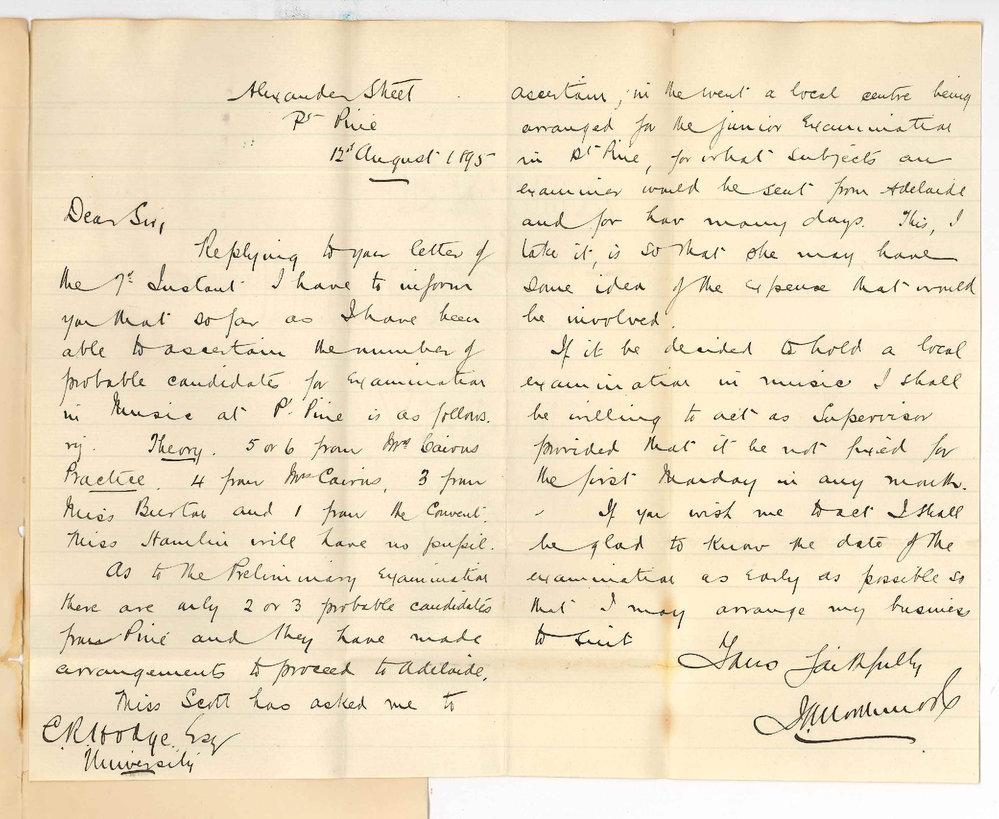 Alexander Street
Pt Pirie
12th August 1895
Dear Sir,
Replying to your letter of
the 7th Instant I have to inform
you that so far as I have been
able to ascertain the number of
probable candidates for Examination
in Music at Pt Pirie is as follows.
viz. Theory. 5 or 6 from Mrs Cairns
Practice. 4 from Mrs Cairns, 3 from
Miss Burton and 1 from the Convent.
Miss Hamlin will have no pupil.
As to the Preliminary Examination
there are only 2 or 3 probable candidates
from Pirie and they have made
arrangements to proceed to Adelaide.
Miss Scott has asked me to
C. R. Hodge. Esq
University
ascertain, in the event a local centre being
arranged for the Junior Examination
in Pt Pirie, for what subjects an
examiner would be sent from Adelaide
and for how many days. This, I
take it, is so that she may have
some idea of the expense that would
be involved.
If it be decided to hold a local
examination in music I shall
be willing to act as Supervisor
provided that it be not fixed for
the first Monday in any month.
- If you wish me to act I shall
be glad to know the date of the
examination as early as possible so
that I may arrange my business
to suit
Yours faithfully